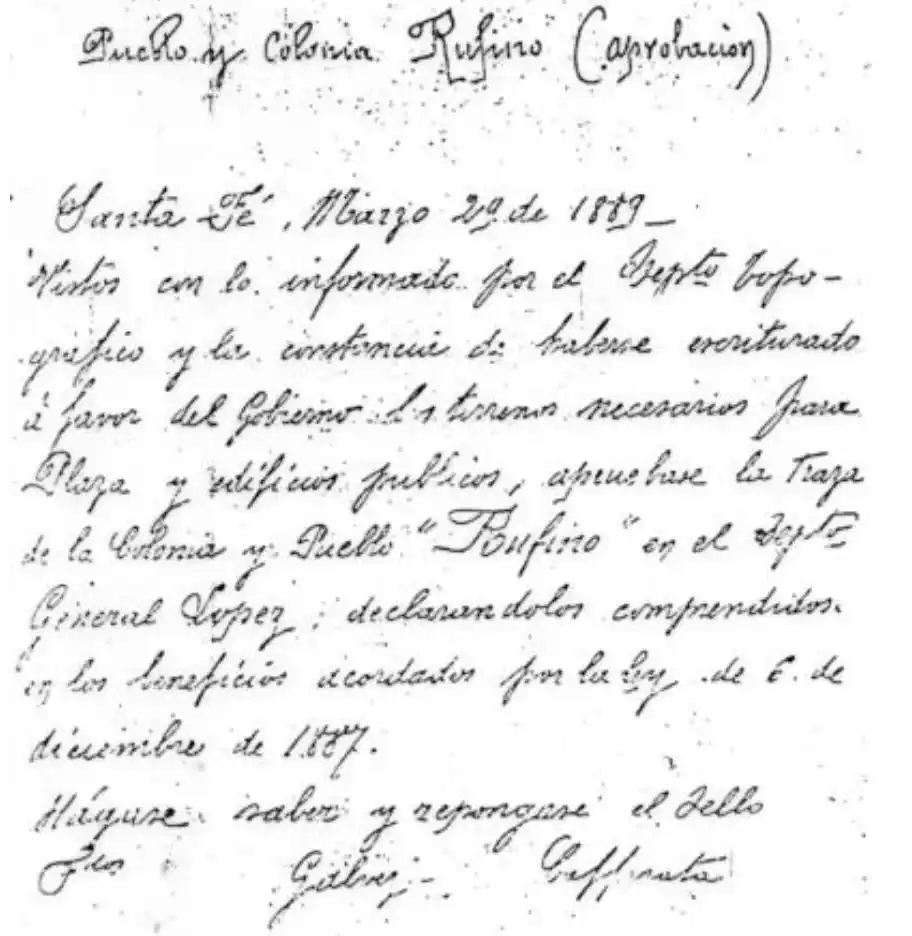 Pueblo y Colonia Rufino (aprobacion)
Santa Fé, Marzo 29 de 1889_
Vistos con lo informado por el Depto Topo-
gráfico y la constancia de haberse escriturado
á favor del Gobierno los terrenos necesarios para
Plaza y edificios publicos, apruebase la Traza
de la Colonia y Pueblo "Rufino" en el Depto
General Lopez, declarandolos comprendidos
en los beneficios acordados por la ley de 6 de
diciembre de 1887.
Hágase saber y repongase el sello
Galvez-